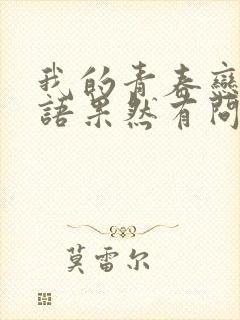 我的青春戀
語果然有問
莫雷尔